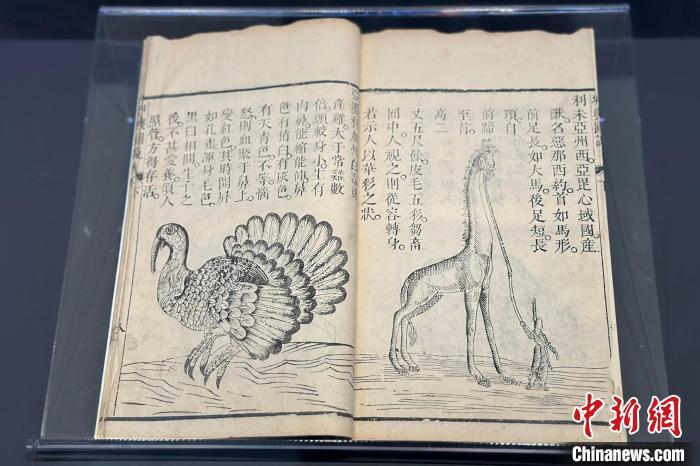 利未亞州西亞毘心域國產
獸名惡那西約。首如馬形。
前足長如大馬。後足短。長
頸。自
前蹄
至首
高二
丈五尺餘。皮毛五彩。芻畜
囿中。人視之。則從容轉身。
若示人以華彩之狀。
產雞。大于常雞數
倍。頭較身小。生有
肉鼻。能縮能伸。鼻
色有稍白。有灰色。
有天青色。不等。惱
怒則血聚于鼻上
變紅色。其時開屏
如孔雀。渾身毛色
黑白相間。生子之
後。不甚愛養。須人
照管。方得存活。
中新网
Chinanews.com